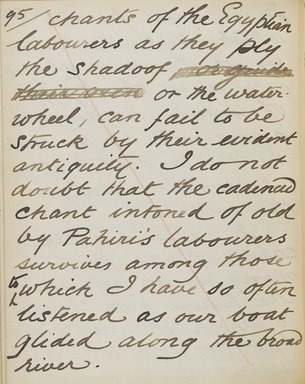 95/ chants of the Egyptian
labourers as they ply
the shadoof or guide
their oxen or the water-
wheel, can fail to be
struck by their evident
antiquity. I do not
doubt that the cadenced
chant intoned of old
by Pahiri's labourers
survives among those
to which I have so often
listened as our boat
glided along the broad
river.